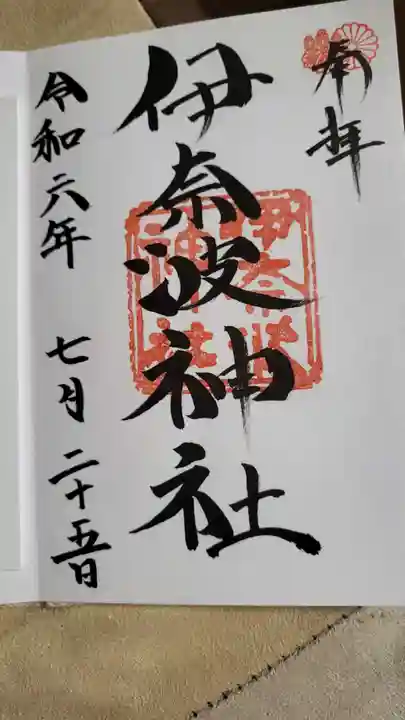 奉拝
伊奈波神社
令和六年 七月二十五日
伊奈波
神社